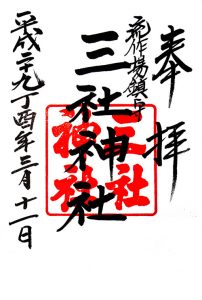 奉拝
流作場鎮守
三社神社
三社
神社
平成二十九丁酉年三月十一日